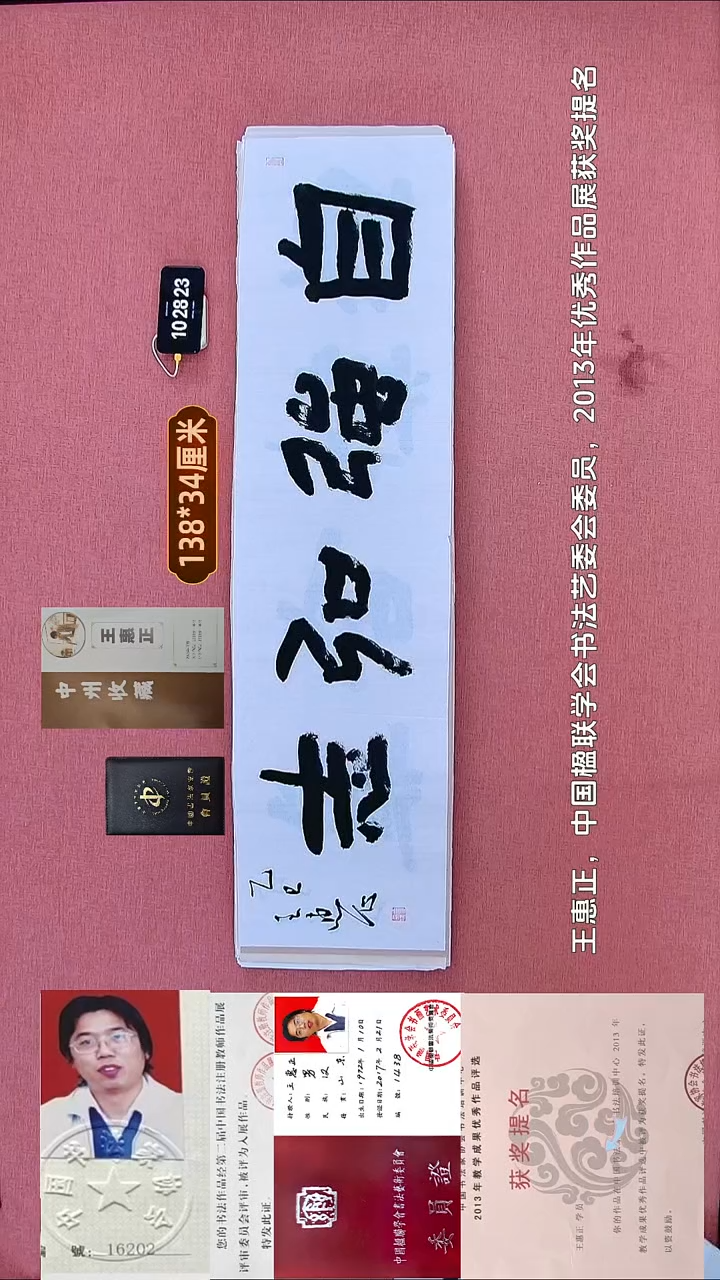 王惠正，中国楹联学会书法艺委会委员，2013年优秀作品展获奖提名
自强弘志
乙巳
王惠正
10 28 23
138*34厘米
王惠正
中州收藏
會員證
16202
您的书法作品经第二届中国书法注册教师作品展
评审委员会评审，被评为入展作品，
特发此证。
持证人：王惠正
性别：男
民族：汉
籍贯：山东
出生日期：1972年1月10日
发证日期：2017年2月21日
编号：1438
中国楹联學會書法藝術委員會
委員證
2013年教学成果优秀作品评选
获奖提名
王惠正 学员
书法培训中心 2013 年
教学成果优秀作品评选
获奖提名，特发此证，
以资鼓励。